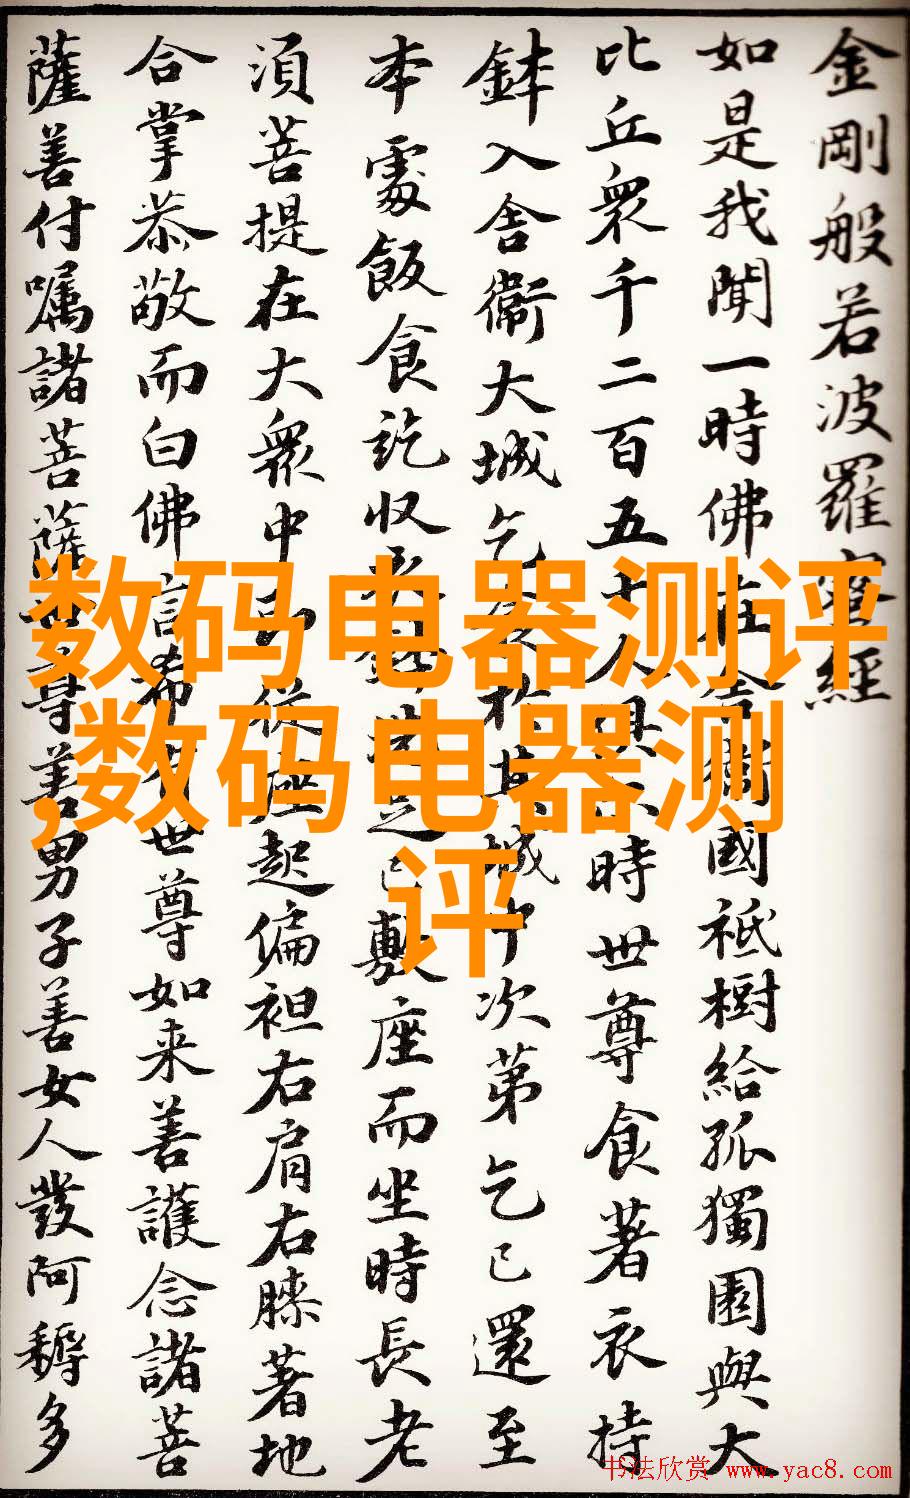 金剛般若波羅蜜經
如是我聞一時佛在舍衛國祇樹給孤獨園與大
比丘衆千二百五十人俱爾時世尊食著衣持
鉢入舍衛大城乞食於其城中次第乞已還至
本處飯食訖收衣鉢洗足已敷座而坐時長老
須菩提在大衆中即從座起偏袒右肩右膝著地
合掌恭敬而白佛言希有世尊如来善護念諸菩
薩善付嘱諸菩薩世尊善男子善女人發阿耨多
数码电器测评
,数码电器测
评
书法欣赏 www.yac8.com